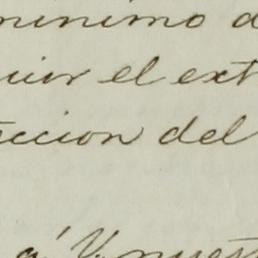 minimo d
uir el ext
eccion del
á V. nuest